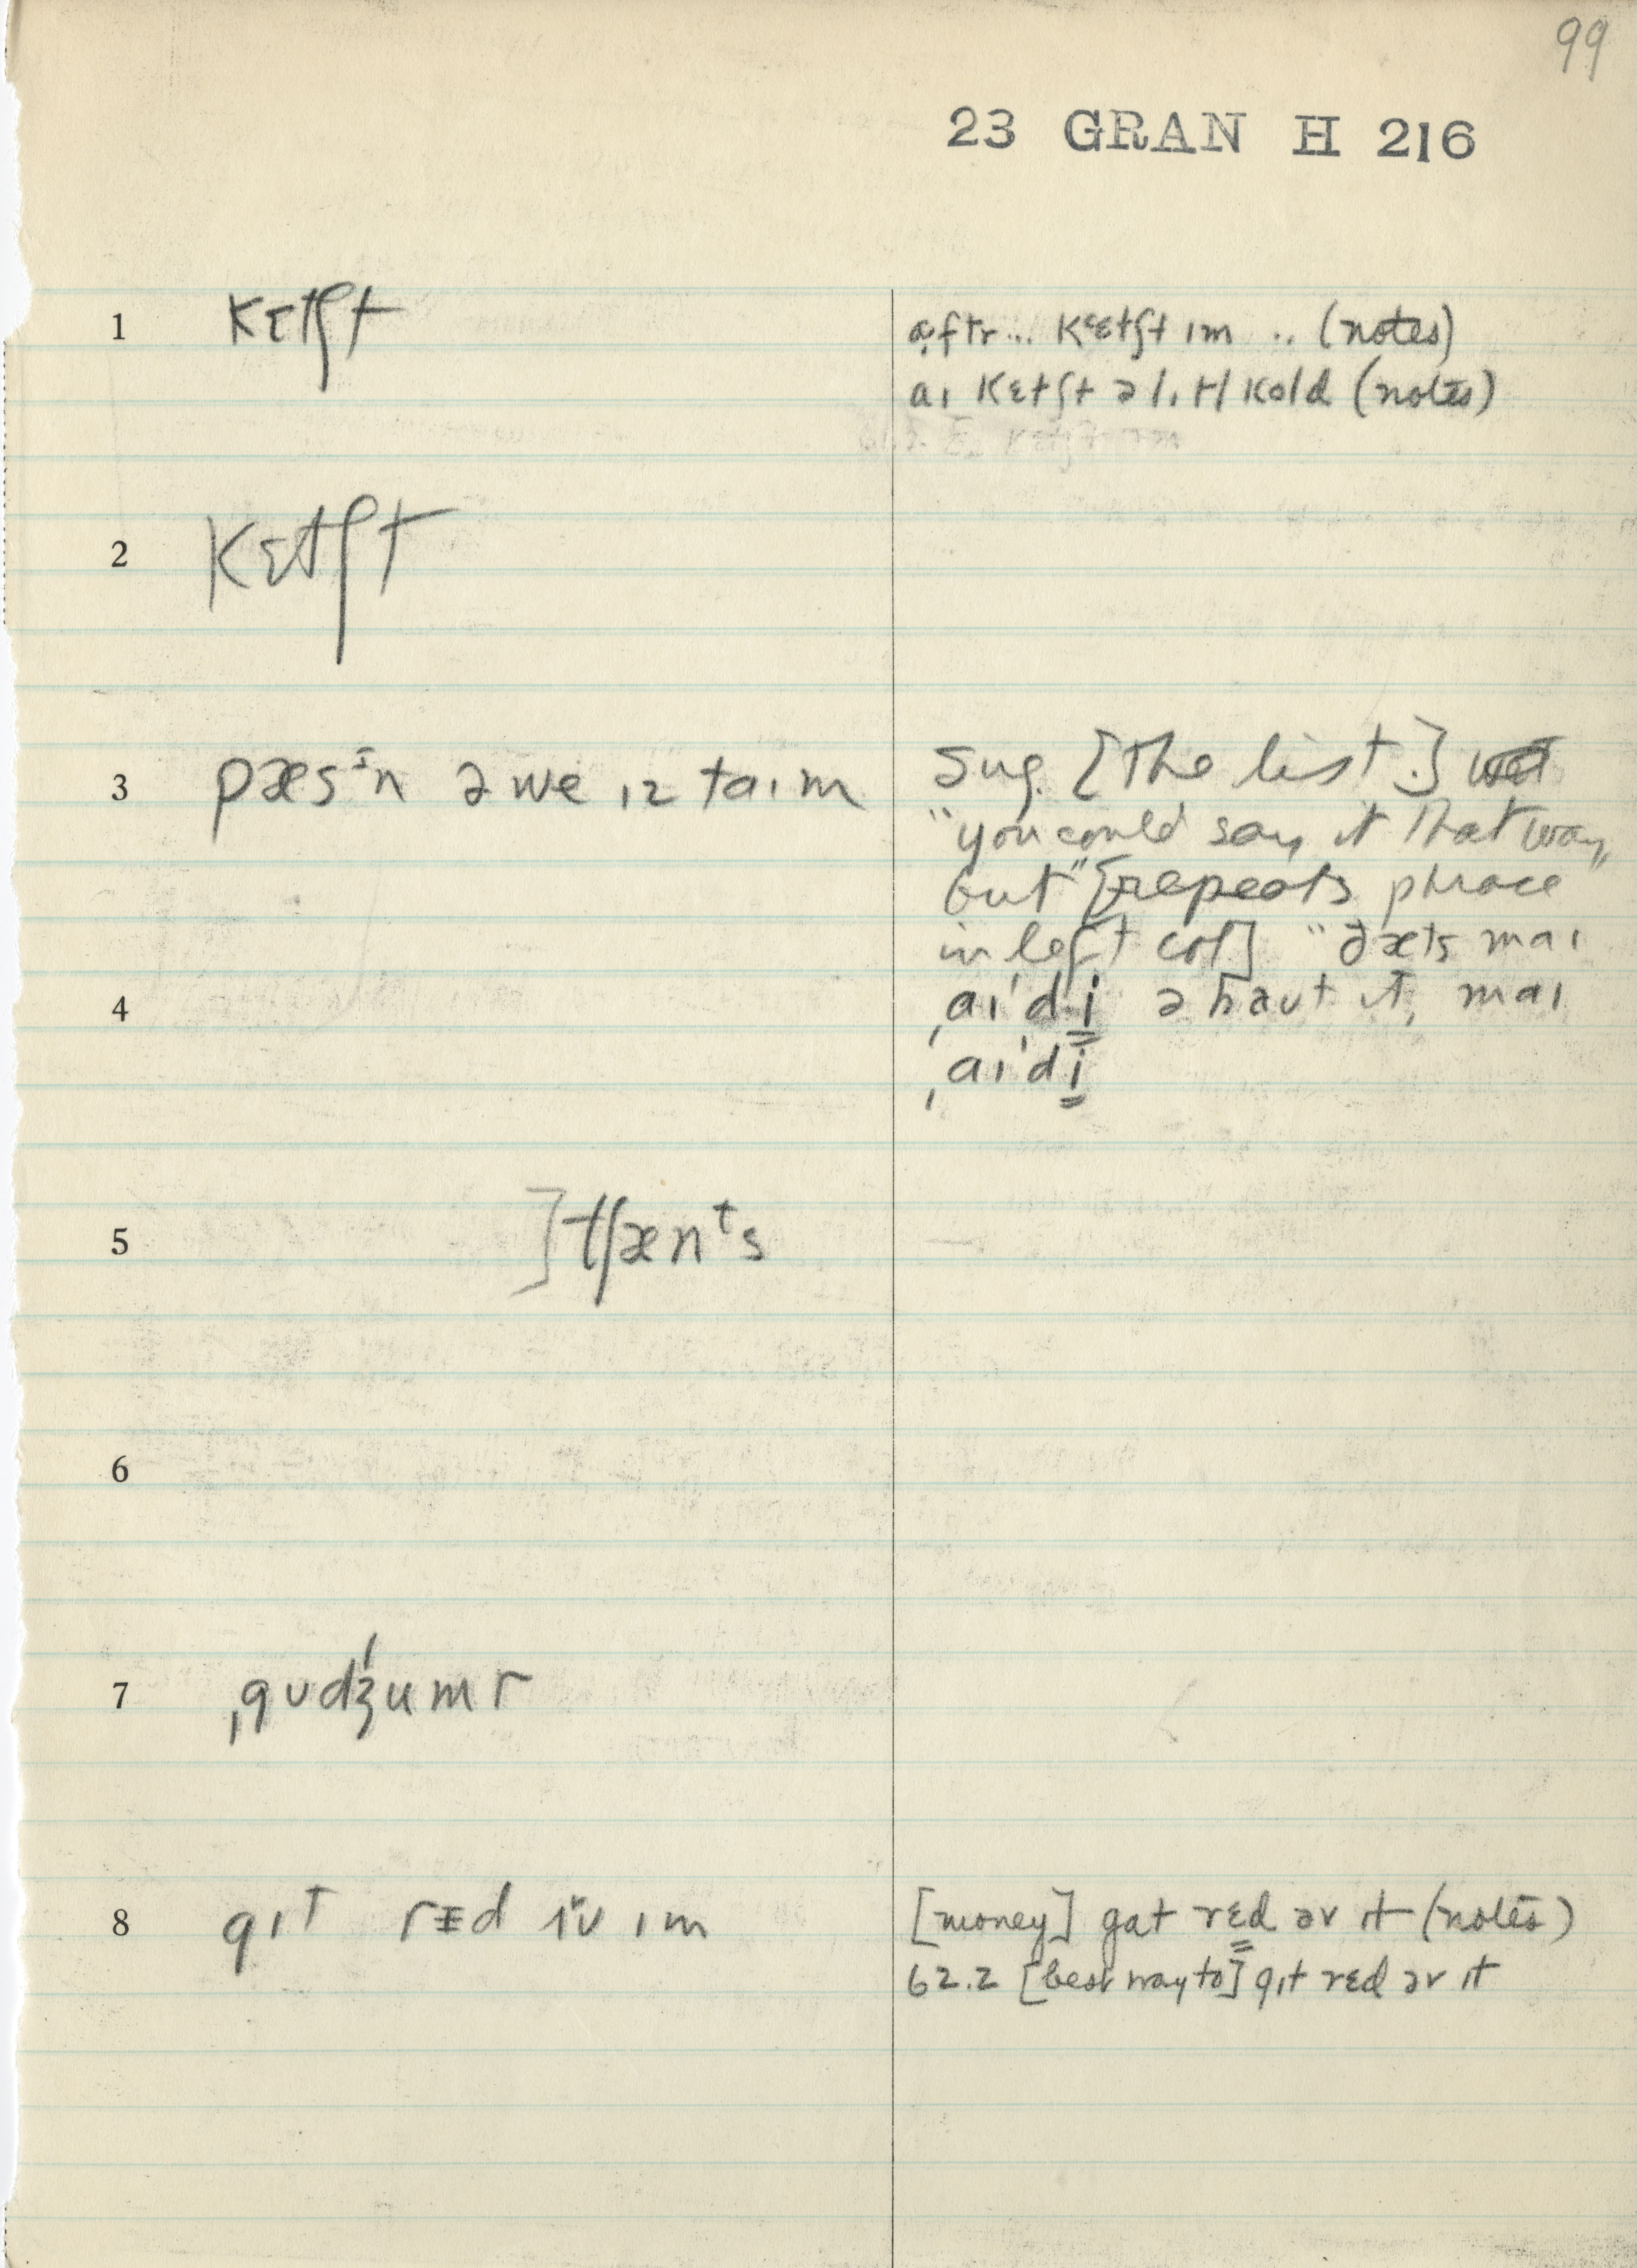 99
23 GRAN H 216
1 kɛtʃt
ɑftr... kɛtʃt ɪm .. (notes)
aɪ kɛtʃt ə lɪtl kold (notes)
2 kɛtʃt
3 pæsɪn əwe ɪz taɪm
Sug. [the list.]
"you could say it that way,
but" [repeats phrase
in left col] "ðæts maɪ
4 ˌaɪˈdi əbaut ɪt, maɪ
ˌaɪˈdi
5 ]tʃænᵗs
6
7 ˌgʊˈdʒumr
8 gɪt rɛd ɪv ɪm
[money] gat rɛd əv ɪt (notes)
62.2 [best way to] gɪt rɛd əv ɪt